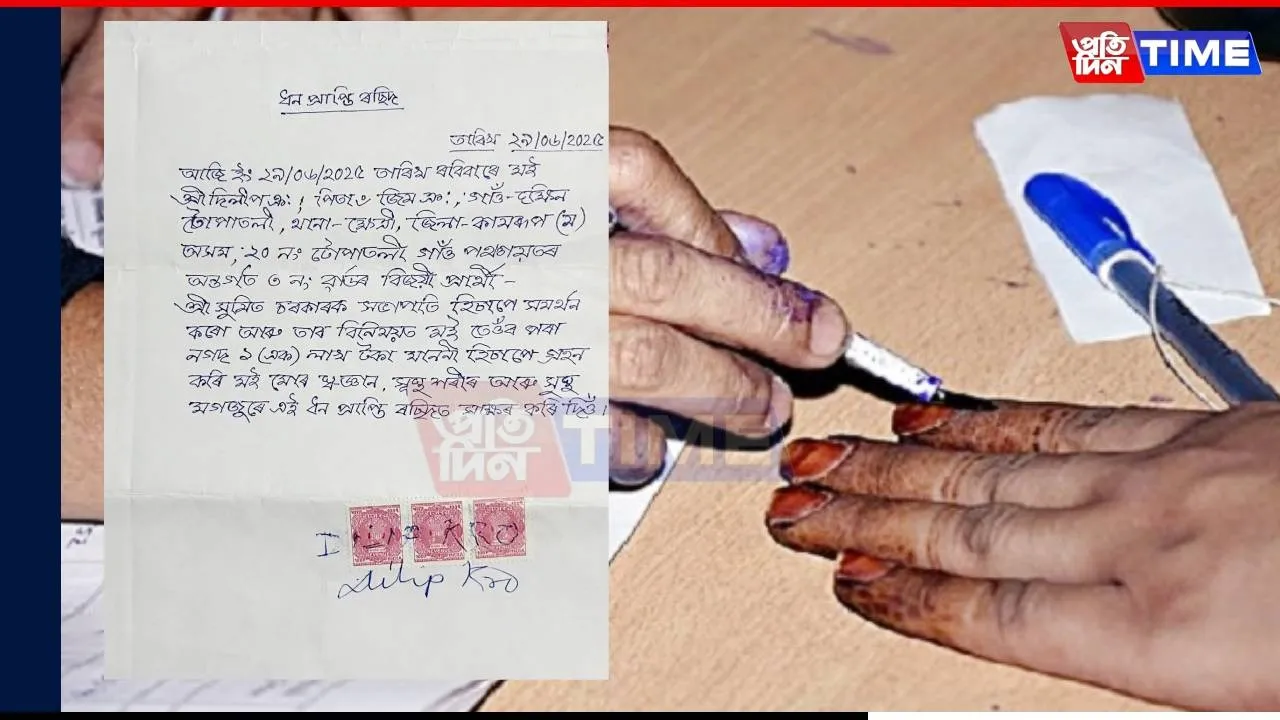 প্ৰতি
দিন TIME
ধন প্ৰাপ্তি ৰচিদ
তাৰিখ ২৯/০৬/২০২৫
আজি ইং ২৯/০৬/২০২৫ তাৰিখ ৰবিবাৰে মই
শ্ৰী দিলীপ ক্ৰ: পিতাঃ গাওঁ-দক্ষিন
টোপাতলী, থানা- জিলা-কামৰূপ (ম)
অসম, ২০ নং টোপাতলী গাওঁ পঞ্চায়তৰ
অন্তৰ্গত ৩ নং ৱাৰ্ডৰ বিজয়ী প্ৰাৰ্থী-
শ্ৰী সুমিত চৰকাৰক সভাপতি হিচাপে সমৰ্থন
কৰো আৰু তাৰ বিনিময়ত মই তেওঁৰ পৰা
নগদ ১ (এক) লাখ টকা মাননী হিচাপে গ্ৰহন
কৰি মই মোৰ স্বজ্ঞান, সুস্থ শৰীৰ আৰু সুস্থ
মগজুৰে এই ধন প্ৰাপ্তি ৰচিদত স্বাক্ষৰ কৰি দিওঁ।
প্ৰতি
দিন TIME
Dilip Kro